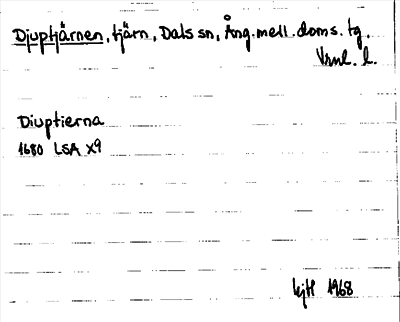 Djuptjärnen, tjärn, Dals sn, Ång. mell. doms. tg.
Vrnl. l.
Diuptierna
1680 LSA X9
1968